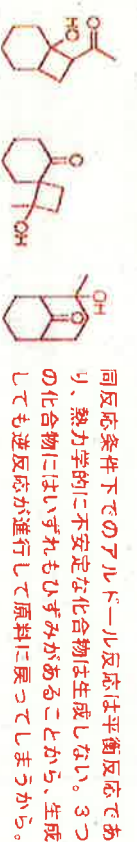 HO
O
O
OH
OH
O
同反応条件下でのアルドール反応は平衡反応であ
り、熱力学的に不安定な化合物は生成しない。3つ
の化合物にはいずれもひずみがあることから、生成
しても逆反応が進行して原料に戻ってしまうから。